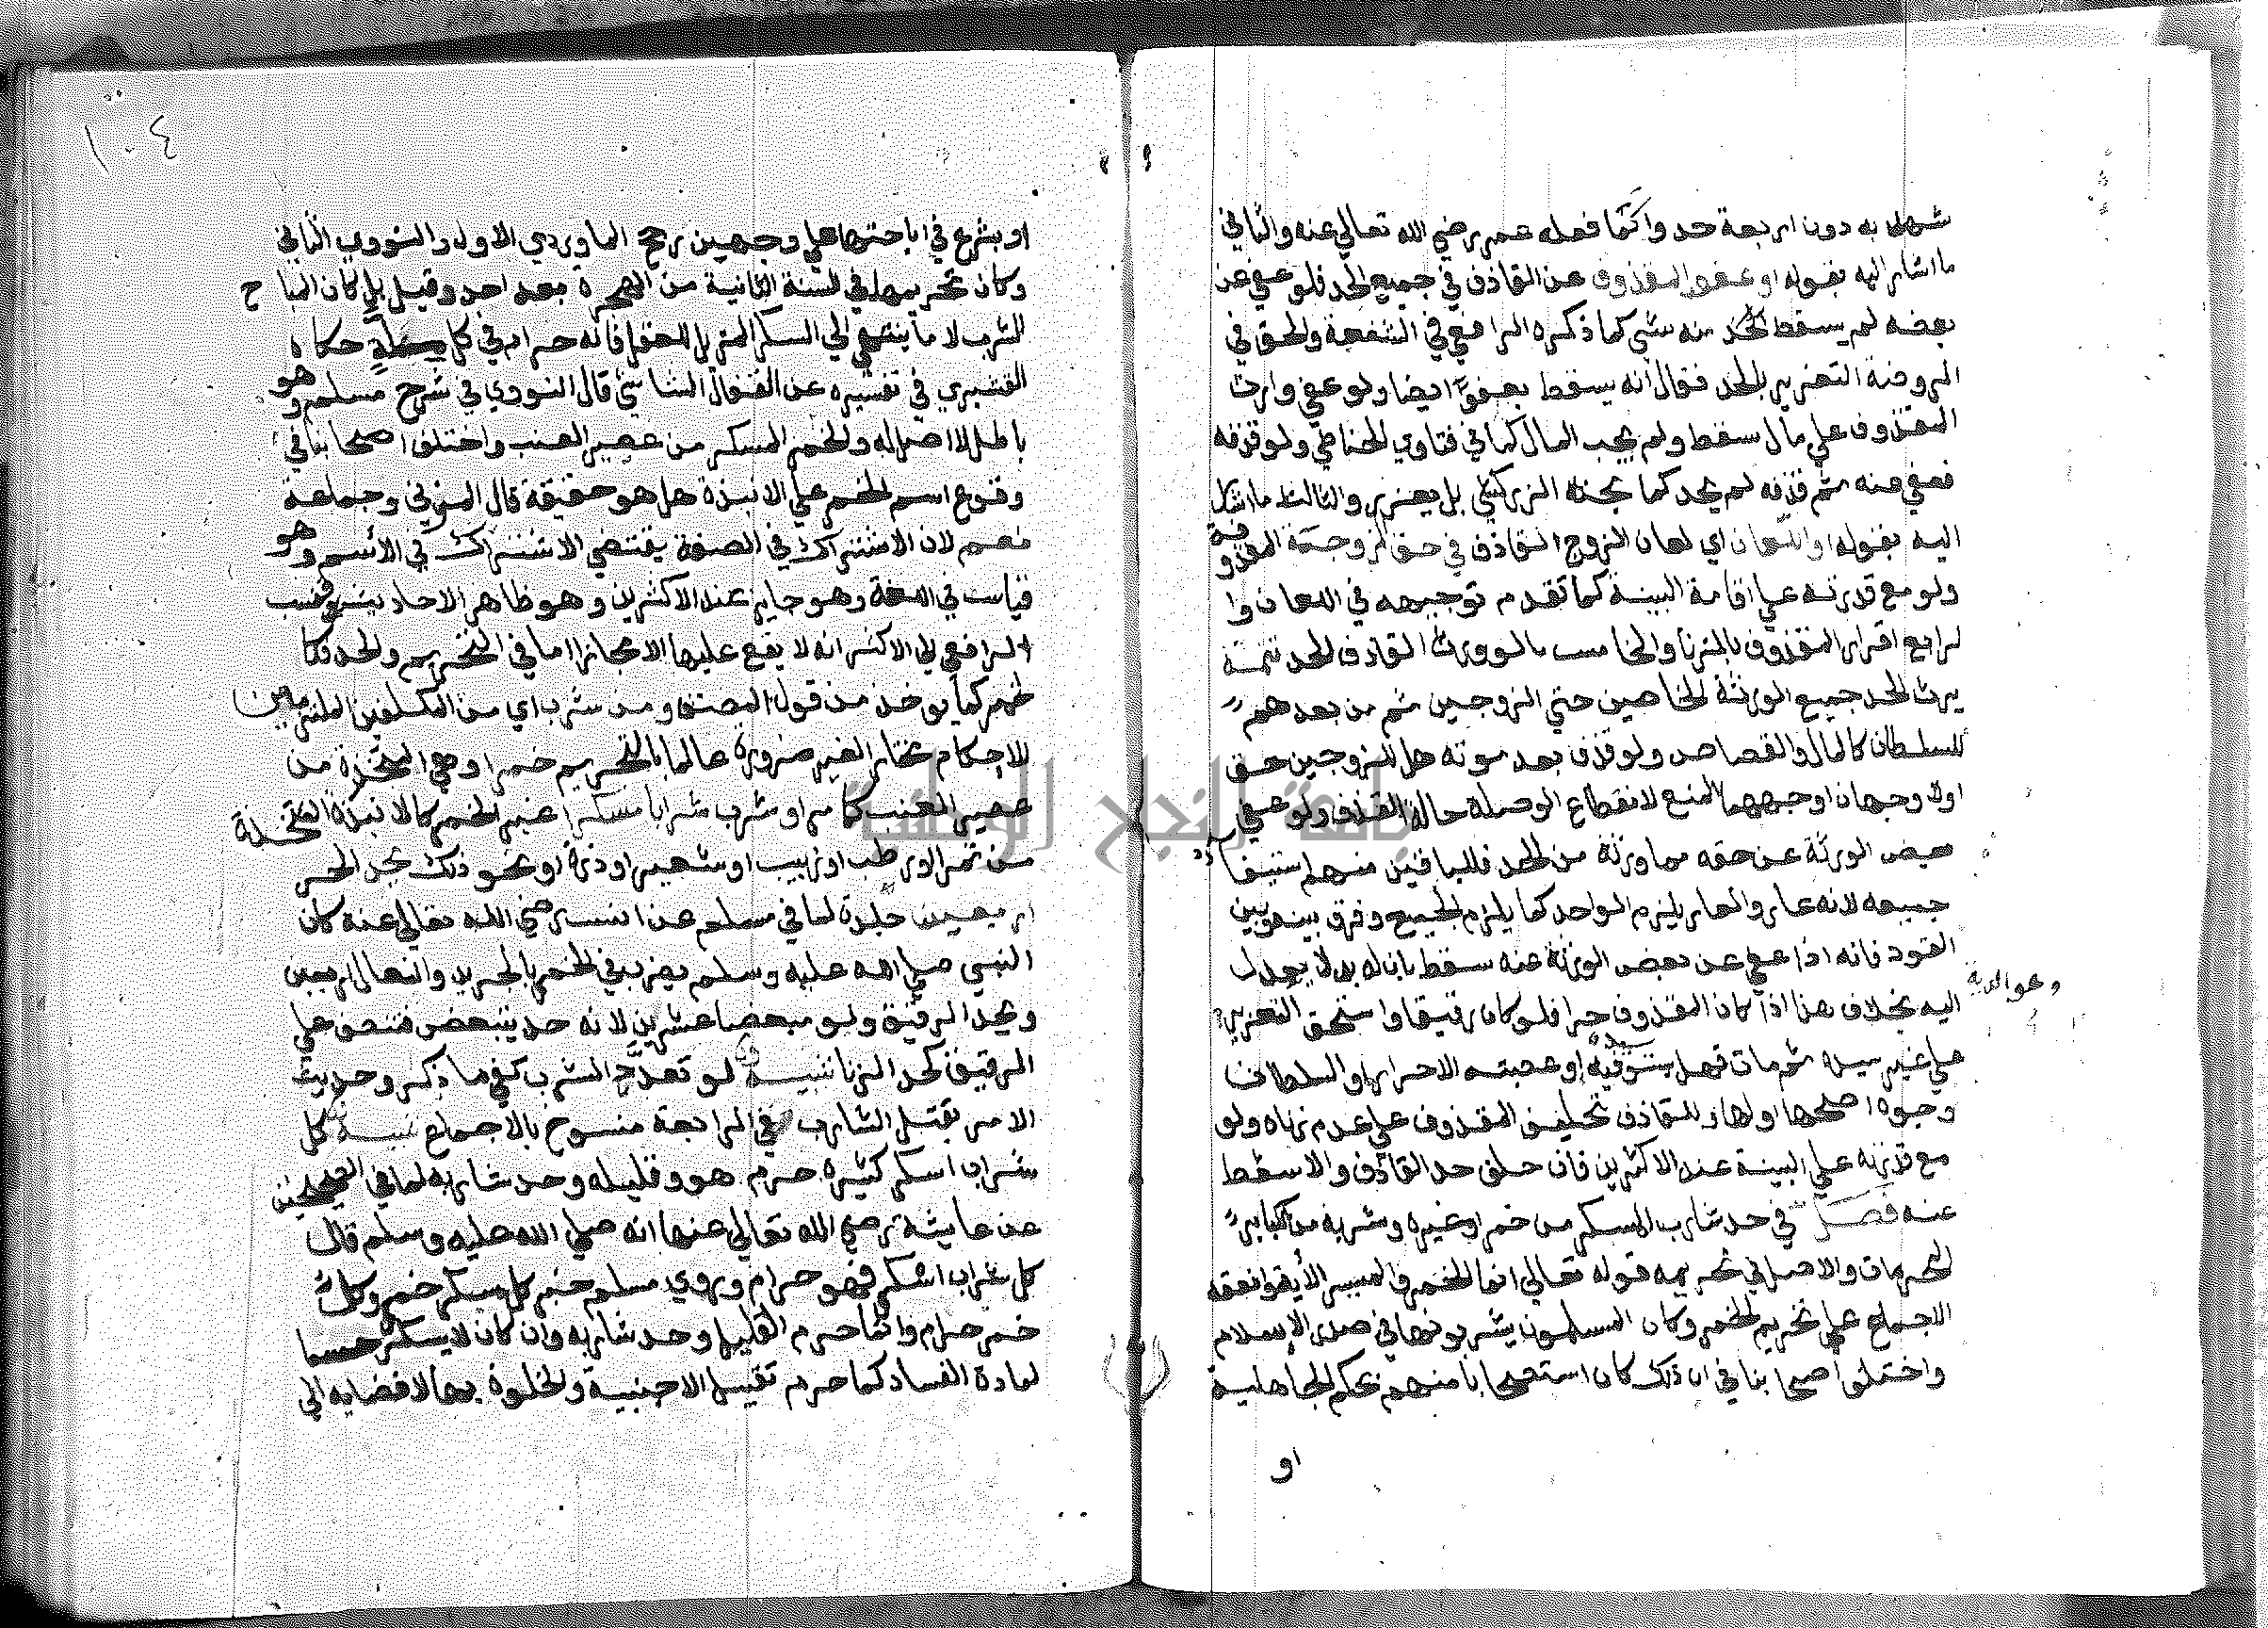 شهد به دون اربعة حدوا كما فعله عمر رضي الله تعالي عنه والثاني
ما اشار اليه بقوله او عفو المقذوف عن القاذف في جميع الحد فلو عفي عن
بعضه لم يسقط منه شي كما ذكره الرافعي في الشفعة والحق في
الروضة التعزير بالحد فقال انه يسقط بعفو ايضا ولو عفي وارث
المقذوف علي مال سقط ولم يجب المال كما في فتاوي الحناطي ولو قذفه
فعفي عنه ثم قذفه لم يحد كما بحثه الزركشي بل يعزر والثالث ما اشار
اليه بقوله او اللعان اي لعان الزوج القاذف في حق الزوجة المقذوفة
ولو مع قدرته علي اقامة البينة كما تقدم توجيهه في اللعان وا
لرابع اقرار المقذوف بالزنا والخامس ما لو ورث القاذف الحد تتمة
يرث الحد جميع الورثة الخاصين حتي الزوجين ثم من بعدهم
للسلطان كالمال والقصاص ولو قذف بعد موته هل للزوجين حق
اولا وجهان اوجههما المنع لانقطاع الوصلة حالة القذف ولو عفي
بعض الورثة عن حقه مما ورثه من الحد فللباقين منهم استيفا
جميعه لانه عار والعار يلزم الواحد كما يلزم الجميع وفرق بينه وبين
القود فانه اذا عفي عن بعض الورثة عنه سقط بان له بدلا يعدل
وهو الدية
اليه بخلاف هذا اذا كان المقذوف حرا فلو كان رقيقا واستحق التعزير
علي غير سيده ثم مات فهل يستوفيه سيده او عصبته الاحرار او السلطان
وجوه اصحها اولها وللقاذف تحليف المقذوف علي عدم زناه ولو
مع قدرته علي البينة عند الاكثرين فان حلف حد القاذف والا سقط
عنه فصل في حد شارب المسكر من خمر او غيره وشربه من كبائر
المحرمات والاصل في تحريمه قوله تعالي انما الخمر والميسر الأية وانعقد
الاجماع علي تحريم الخمر وكان المسلمون يشربونها في صدر الإسلام
واختلف اصحابنا في ان ذلك كان استصحابا منهم بحكم الجاهلية
او
١٠٤
او بشرع في اباحتها علي وجهين رجح الماوردي الاول والنووي الثاني
وكان تحريمها في السنة الثانية من الهجرة بعد احد وقيل بل كان المباح
الشرب لا ما ينتهي الي السكر المزيل للعقل فانه حرام في كل ملة حكاه
القشيري في تفسيره عن القفال الشاشي قال النووي في شرح مسلم وهو
باطل لا اصل له والخمر المسكر من عصير العنب واختلف اصحابنا في
وقوع اسم الخمر علي الانبذة هل هو حقيقة قال المزني وجماعة
نعم لان الاشتراك في الصفة يقتضي الاشتراك في الاسم وهو
قياس في اللغة وهو جايز عند الاكثرين وهو ظاهر الاحاديث ونسب
الرافعي الي الاكثر انه لا يقع عليها الا مجازا اما في التحريم والحد فكا
لخمر كما يوخذ من قول المصنف ومن شرب اي من المكلفين الملتزمين
للاحكام مختارا لغير ضرورة عالما بالتحريم خمرا وهي المتخذة من
عصير العنب كما مر او شرب شرابا مسكرا غير الخمر كالانبذة المتخذة
من تمر او رطب او زبيب او شعير او ذرة او نحو ذلك يحد الحر
اربعين جلدة لما في مسلم عن انس رضي الله تعالي عنه كان
النبي صلي الله عليه وسلم يضرب في الخمر بالجريد والنعال اربعين
ويحد الرقيق ولو مبعضا عشرين لانه حد يتبعض فتنصف علي
الرقيق كحد الزنا تنبيه لو تعدد الشرب كفي ما ذكر وحديث
الامر بقتل الشارب في الرابعة منسوخ بالاجماع تنبيه كل
شراب اسكر كثيره حرم هو وقليله وحد شاربه لما في الصحيحين
عن عايشة رضي الله تعالي عنها انه صلي الله عليه وسلم قال
كل شراب اسكر فهو حرام وروي مسلم خبر كل مسكر خمر وكل
خمر حرام وانما حرم القليل وحد شاربه وان كان لا يسكر حسما
لمادة الفساد كما حرم تقبيل الاجنبية والخلوة بها لافضايه الي
جامعة النجاح الوطنية